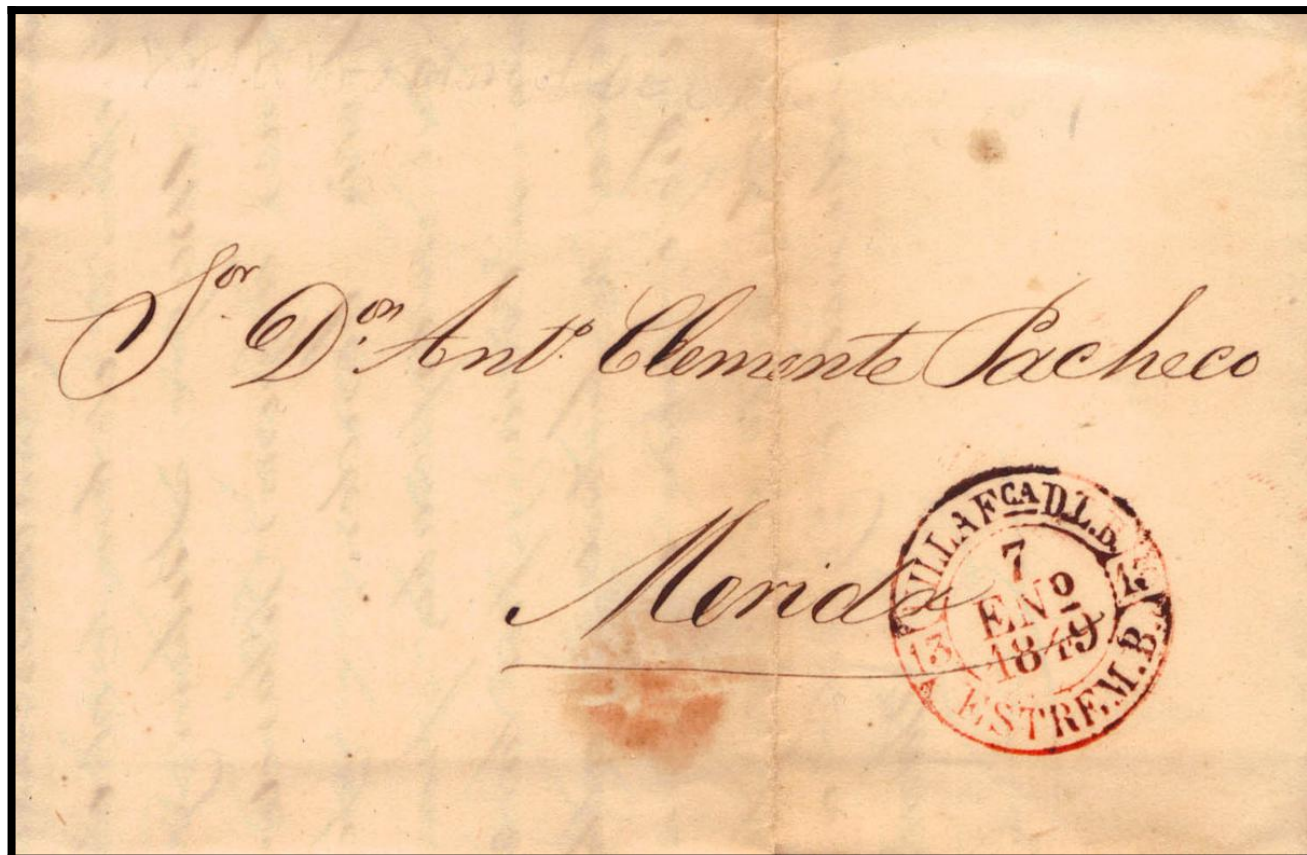 Sor Dn. Anto. Clemente Pacheco
Merida
VILLAFCA D.L.B.
13 13
7
ENO
1849
ESTREM.B.